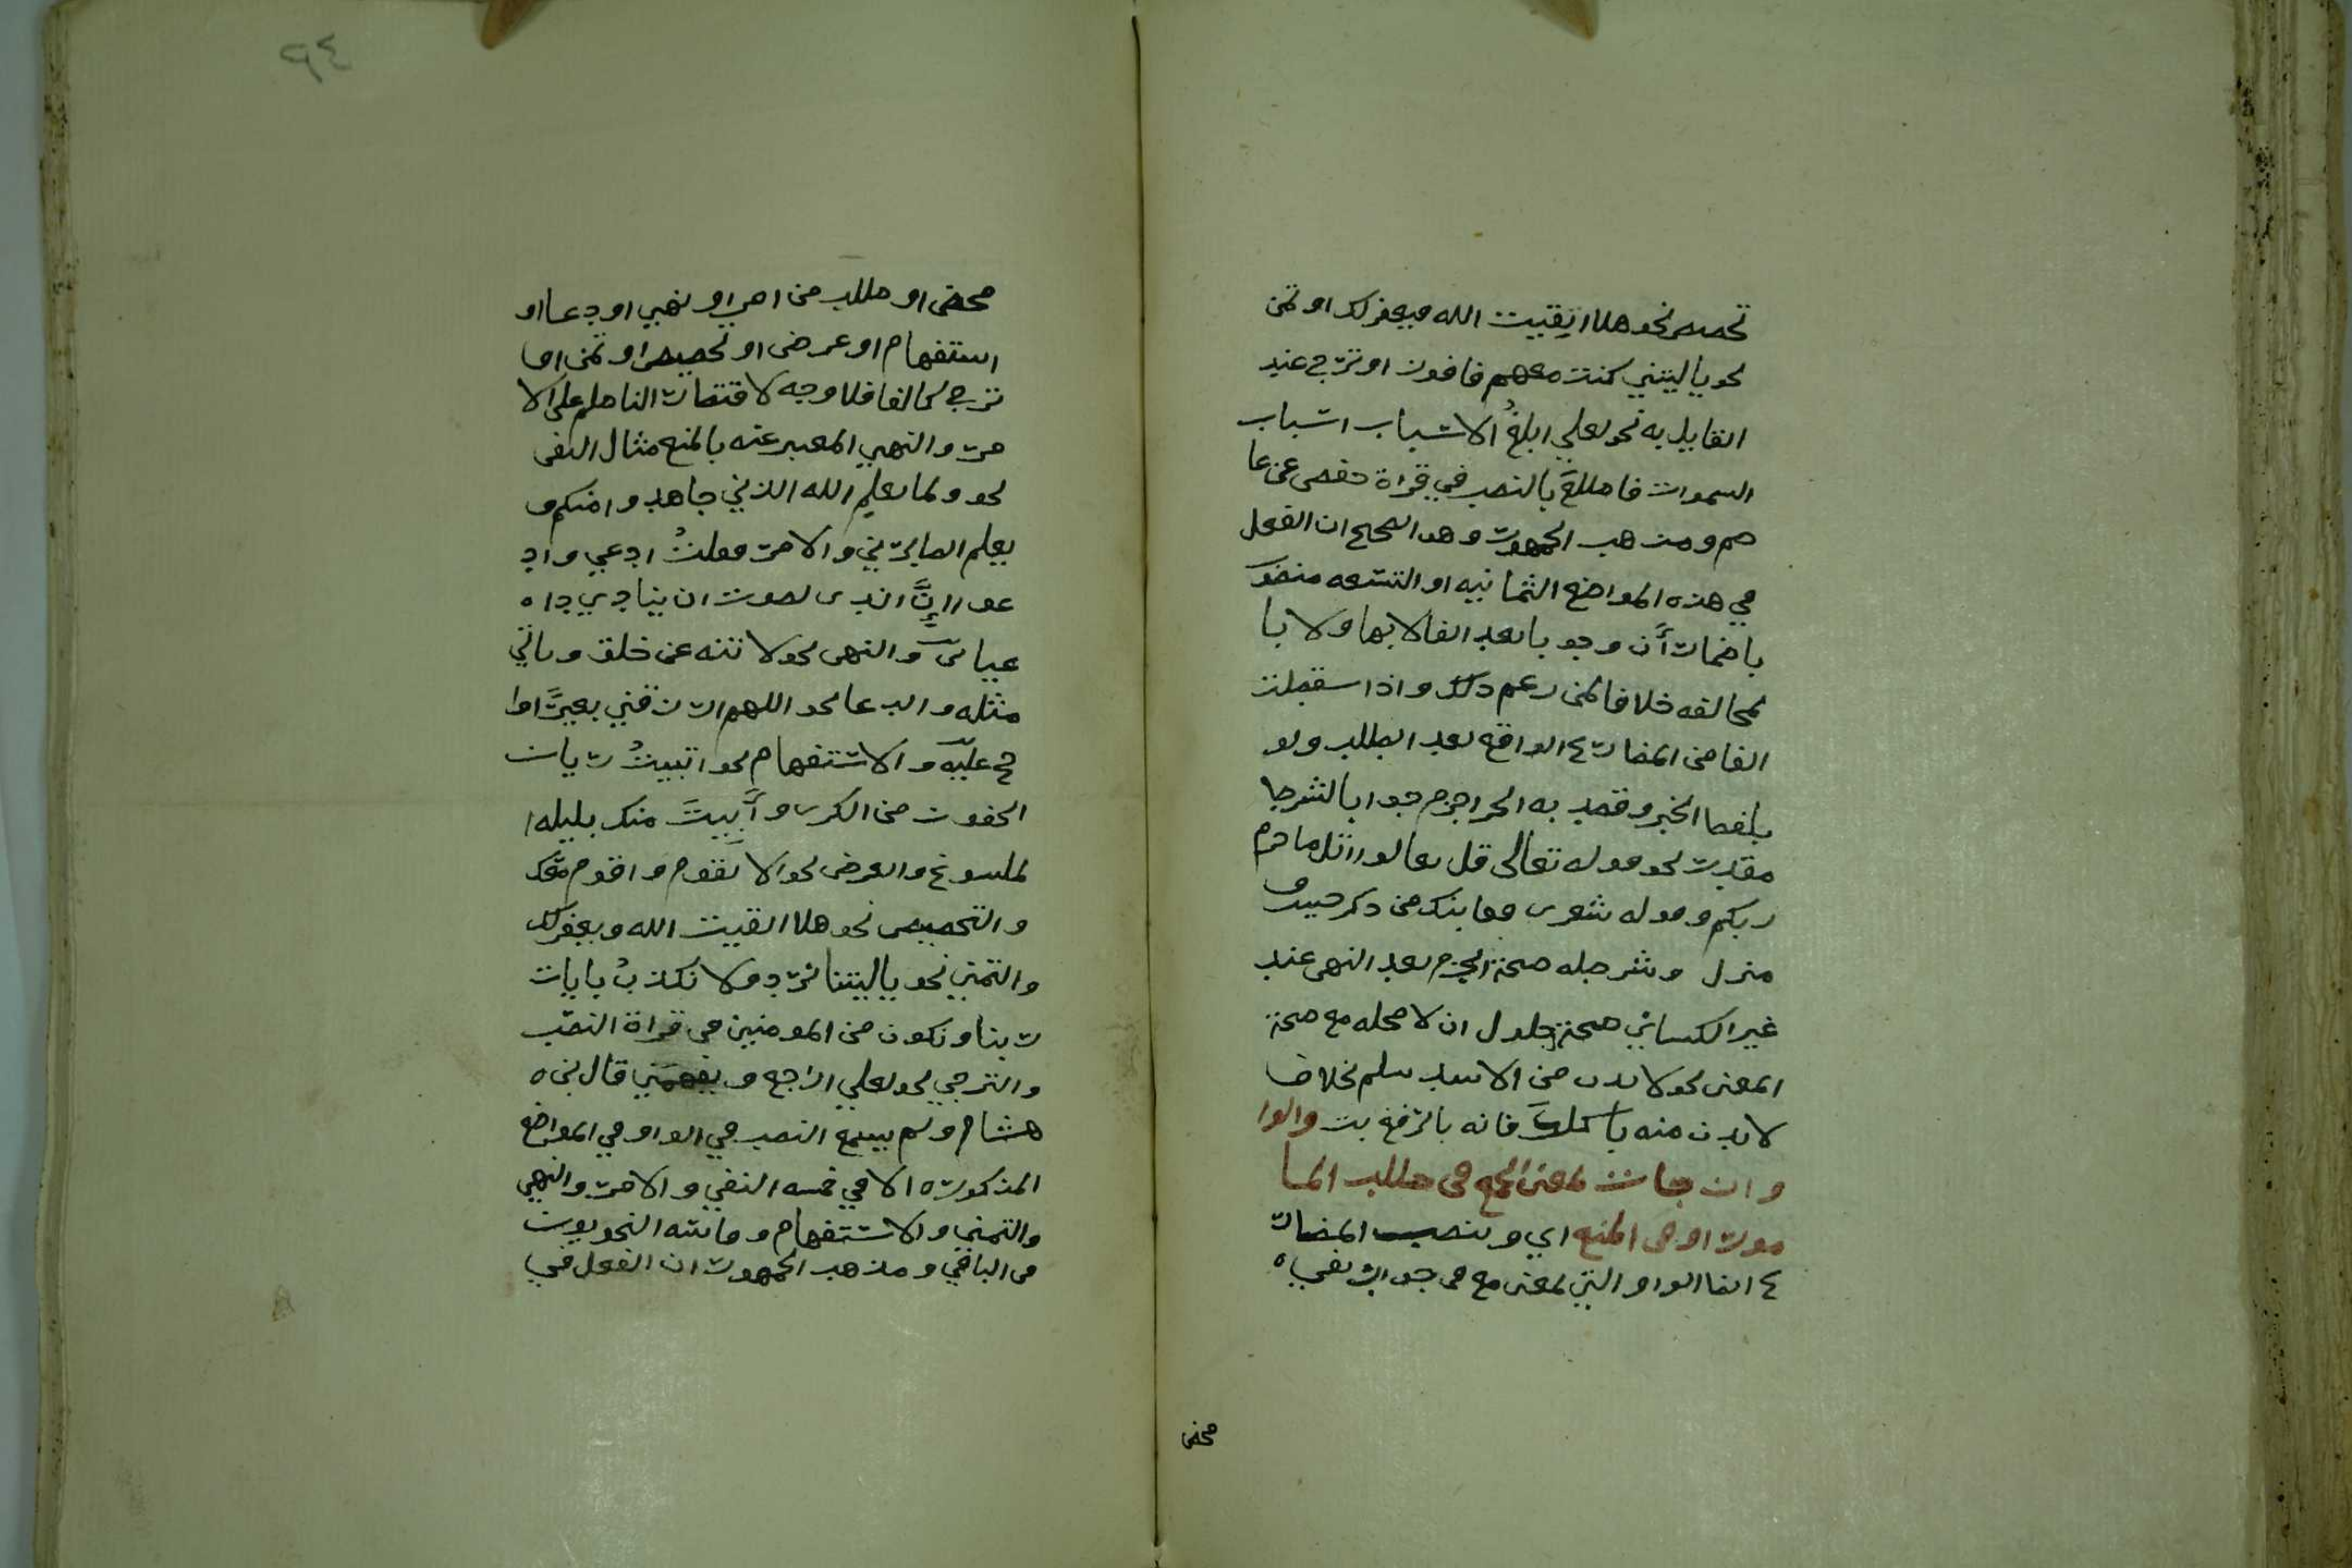 تحصيص نحو هلا اتقيت الله فيغفر لك او تمن
نحو يا ليتني كنت معهم فافوز او ترج عند
القايل به نحو لعلي ابلغ الاسباب اسباب
السموات فاطلع بالنصب في قراة حفص عن عا
صم ومذهب الجمهور وهو الصحيح ان الفعل
في هذه المواضع الثمانيه او التسعه منصوب
باضمار أن وجوبا بعد الفا لا بها ولا با
لمخالفه خلافا لمن زعم ذلك واذا سقطت
الفا من المضارع الواقع بعد الطلب ولو
بلفظ الخبر وقصد به الجزا جزم جوابا لشرط
مقدر نحو قوله تعالى قل تعالوا اتل ما حرم
ربكم وقوله شعر قفا نبك من ذكر حبيب و
منزل وشرطه صحة الجزم بعد النهي عند
غير الكسائي صحة حلول ان لا محله مع صحة
المعنى نحو لا تدن من الاسد تسلم بخلاف
لا تدن منه ياكلك فانه بالرفع والوا
و ان جات لمعنى الجمع في طلب الما
مور او في المنع اي وتنصب المضار
ع ايضا الواو التي لمعنى مع في جواب نفي
محض
٩٤
محض او طلب من امر او نهي او دعا او
استفهام او عرض او تحصيص او تمن او
ترج كالفا فلا وجه لاقتصار الناظم على الا
مر والنهي المعبر عنه بالمنع مثال النفي
نحو ولما يعلم الله الذين جاهدوا منكم و
يعلم الصابرين والامر فقلت ادعي واد
عو ان اندى لصوت ان ينادي دا
عيان والنهي نحو لا تنه عن خلق وتاتي
مثله والدعا نحو اللهم ارزقني بعيرا احا
ج عليه والاستفهام نحو اتبيت ريان
الجفون من الكرى وأبيت منك بليله ا
لملسوع والعرض نحو الا تقوم واقوم معك
والتحصيص نحو هلا اتقيت الله ويغفر لك
والتمني نحو يا ليتنا نرد ولا نكذب بايات
ربنا ونكون من المومنين في قراة النصب
والترجي نحو لعلي اراجع ويفهمني قال بن
هشام ولم يسمع النصب في الواو في المواضع
المذكوره الا في خمسه النفي والامر والنهي
والتمني والاستفهام وقاسه النحويون
في الباقي ومذهب الجمهور ان الفعل في